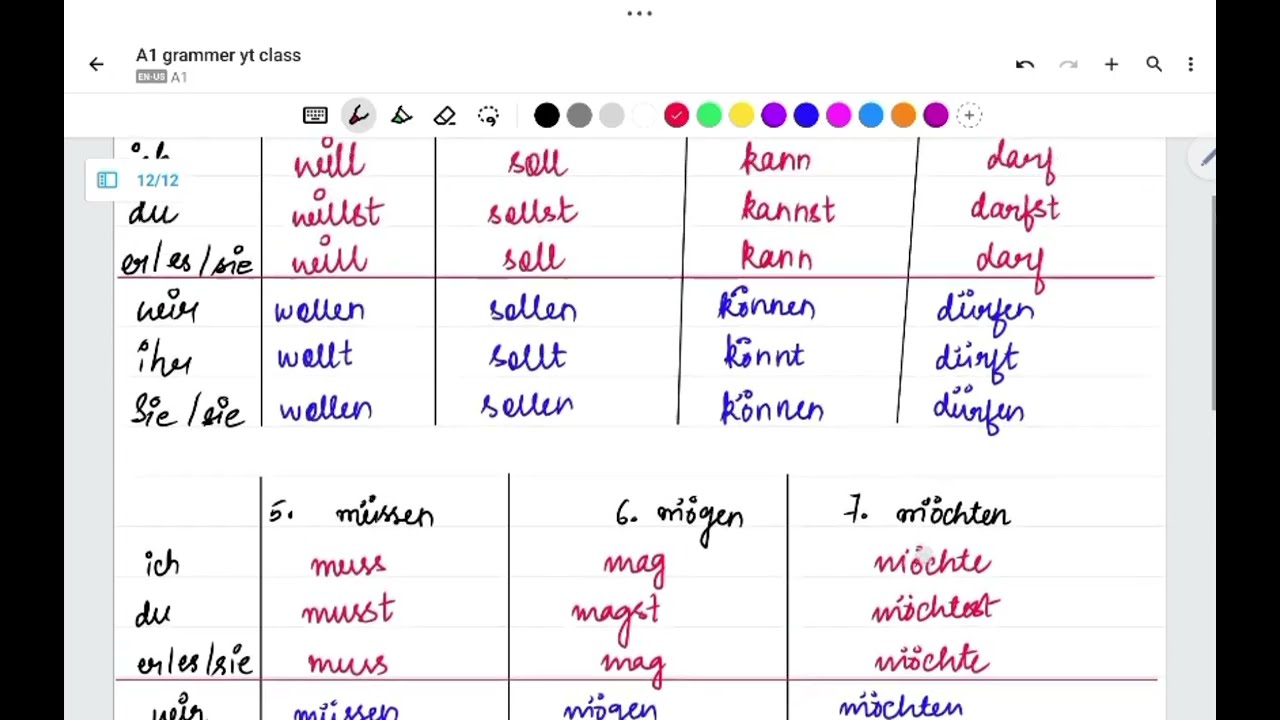 A1 grammer yt class
EN-US A1
12/12
ich will soll kann darf
du willst sollst kannst darfst
er/es/sie will soll kann darf
wir wollen sollen können dürfen
ihr wollt sollt könnt dürft
Sie/sie wollen sollen können dürfen
5. müssen 6. mögen 7. möchten
ich muss mag möchte
du musst magst möchtest
er/es/sie muss mag möchte
wir müssen mögen möchten